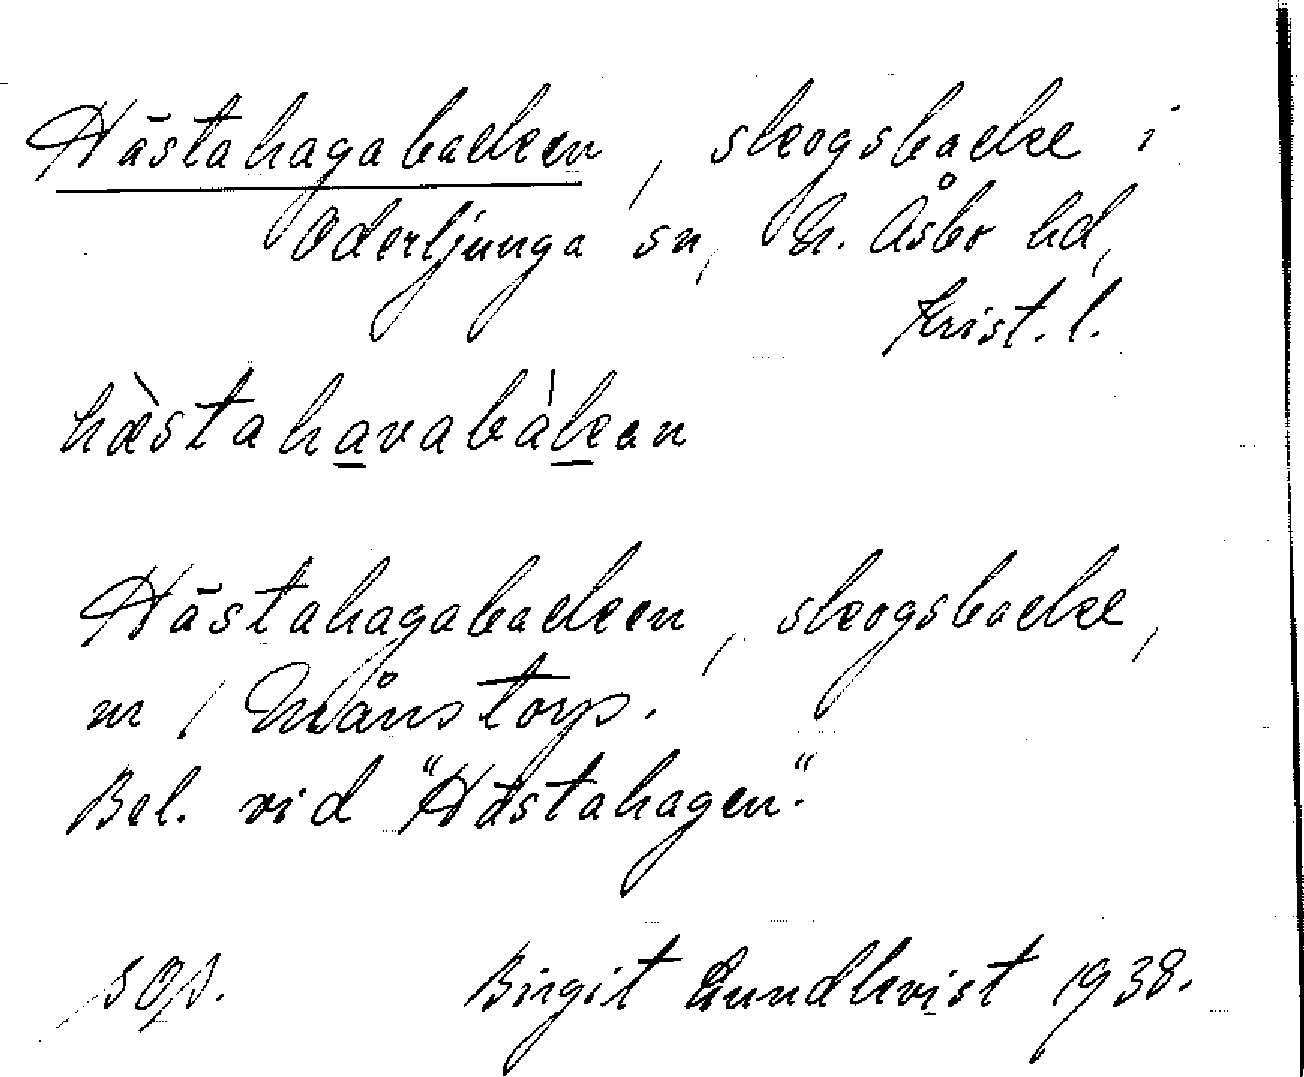 Hästahagabacken, skogsbacke i
Oderljunga sn, N. Åsbo hd,
Krist. l.
hæ̀stahavabàkan
Hästahagabacken, skogsbacke,
m / Månstorp.
Bel. vid "Hästahagen".
sop.
Birgit Lundkvist 1938.